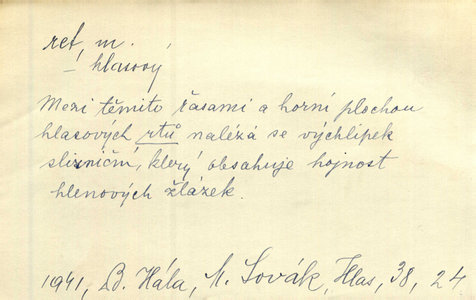 ret, m.
hlasový
Mezi těmito řasami a horní plochou
hlasových rtů nalézá se výchlípek
slizniční, který obsahuje hojnost
hlenových žlázek.
1941, B. Hála, M. Sovák, Hlas, 38, 24